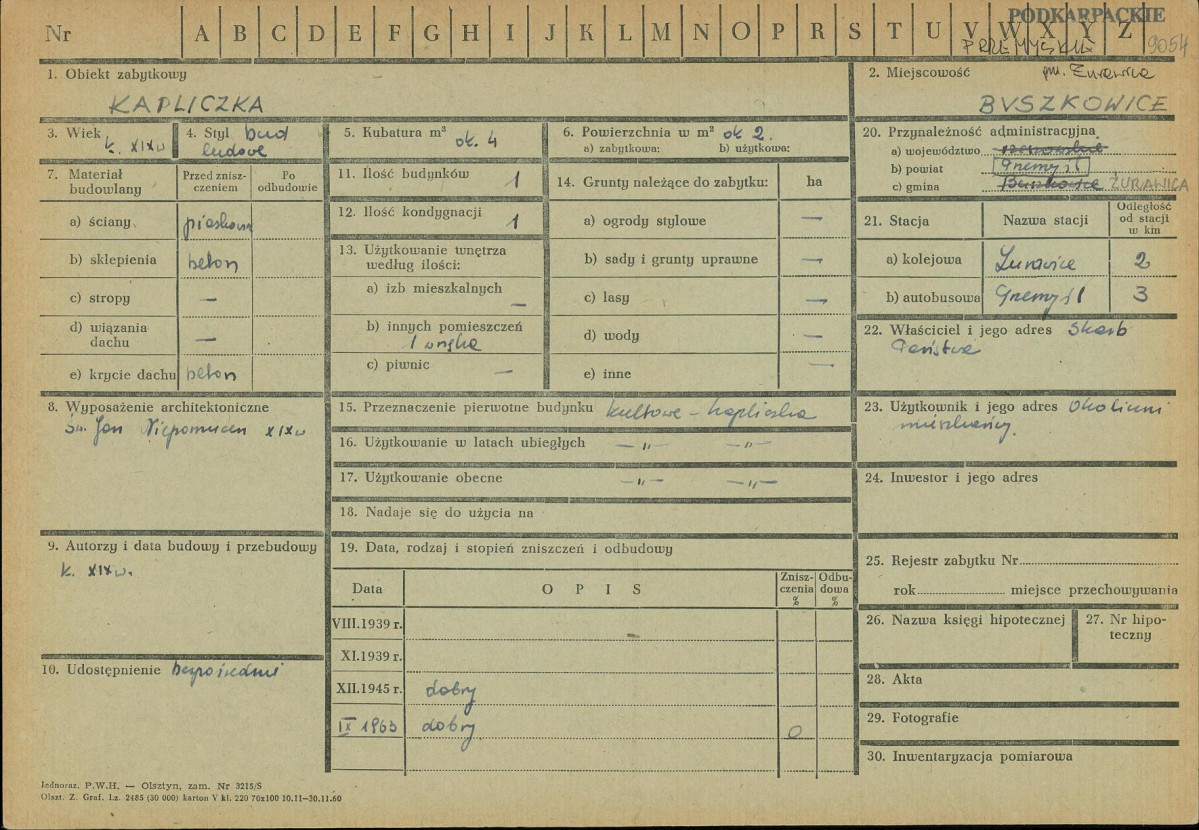 Nr A B C D E F G H I J K L M N O P R S T U V W X Y Z
PODKARPACKIE
PRZEMYSKIE 9054
1. Obiekt zabytkowy
KAPLICZKA
2. Miejscowość gm. Żurawica
BUSZKOWICE
3. Wiek
k. XIX w
4. Styl bud
ludowe
5. Kubatura m³
ok. 4
6. Powierzchnia w m² ok 2.
a) zabytkowa: b) użytkowa:
20. Przynależność administracyjna
a) województwo rzeszowskie
b) powiat Przemyśl
c) gmina Buszkowice ŻURAWICA
7. Materiał
budowlany
Przed znisz-
czeniem
Po
odbudowie
a) ściany piaskowiec
b) sklepienia beton
c) stropy —
d) wiązania
dachu —
e) krycie dachu beton
11. Ilość budynków 1
12. Ilość kondygnacji 1
13. Użytkowanie wnętrza
według ilości:
a) izb mieszkalnych —
b) innych pomieszczeń
1 wnęka
c) piwnic —
14. Grunty należące do zabytku: ha
a) ogrody stylowe —
b) sady i grunty uprawne —
c) lasy —
d) wody —
e) inne —
21. Stacja Nazwa stacji
Odległość
od stacji
w km
a) kolejowa Żurawica 2
b) autobusowa Przemyśl 3
22. Właściciel i jego adres Skarb
Państwa
8. Wyposażenie architektoniczne
Św. Jan Nepomucen XIX w
15. Przeznaczenie pierwotne budynku kultowe – kapliczka
16. Użytkowanie w latach ubiegłych —„— —„—
17. Użytkowanie obecne —„— —„—
18. Nadaje się do użycia na
23. Użytkownik i jego adres Okoliczni
mieszkańcy.
24. Inwestor i jego adres
9. Autorzy i data budowy i przebudowy
k. XIX w.
10. Udostępnienie bezpośrednie
19. Data, rodzaj i stopień zniszczeń i odbudowy
Data O P I S
Znisz-
czenia
%
Odbu-
dowa
%
VIII.1939 r.
XI.1939 r.
XII.1945 r. dobry
IX 1963 dobry 0
25. Rejestr zabytku Nr
rok miejsce przechowywania
26. Nazwa księgi hipotecznej
27. Nr hipo-
teczny
28. Akta
29. Fotografie
30. Inwentaryzacja pomiarowa
Jednoraz. P.W.H. — Olsztyn, zam. Nr 3215/S
Olszt. Z. Graf. Lz. 2485 (30 000) karton V kl. 220 70x100 10.11—30.11.60